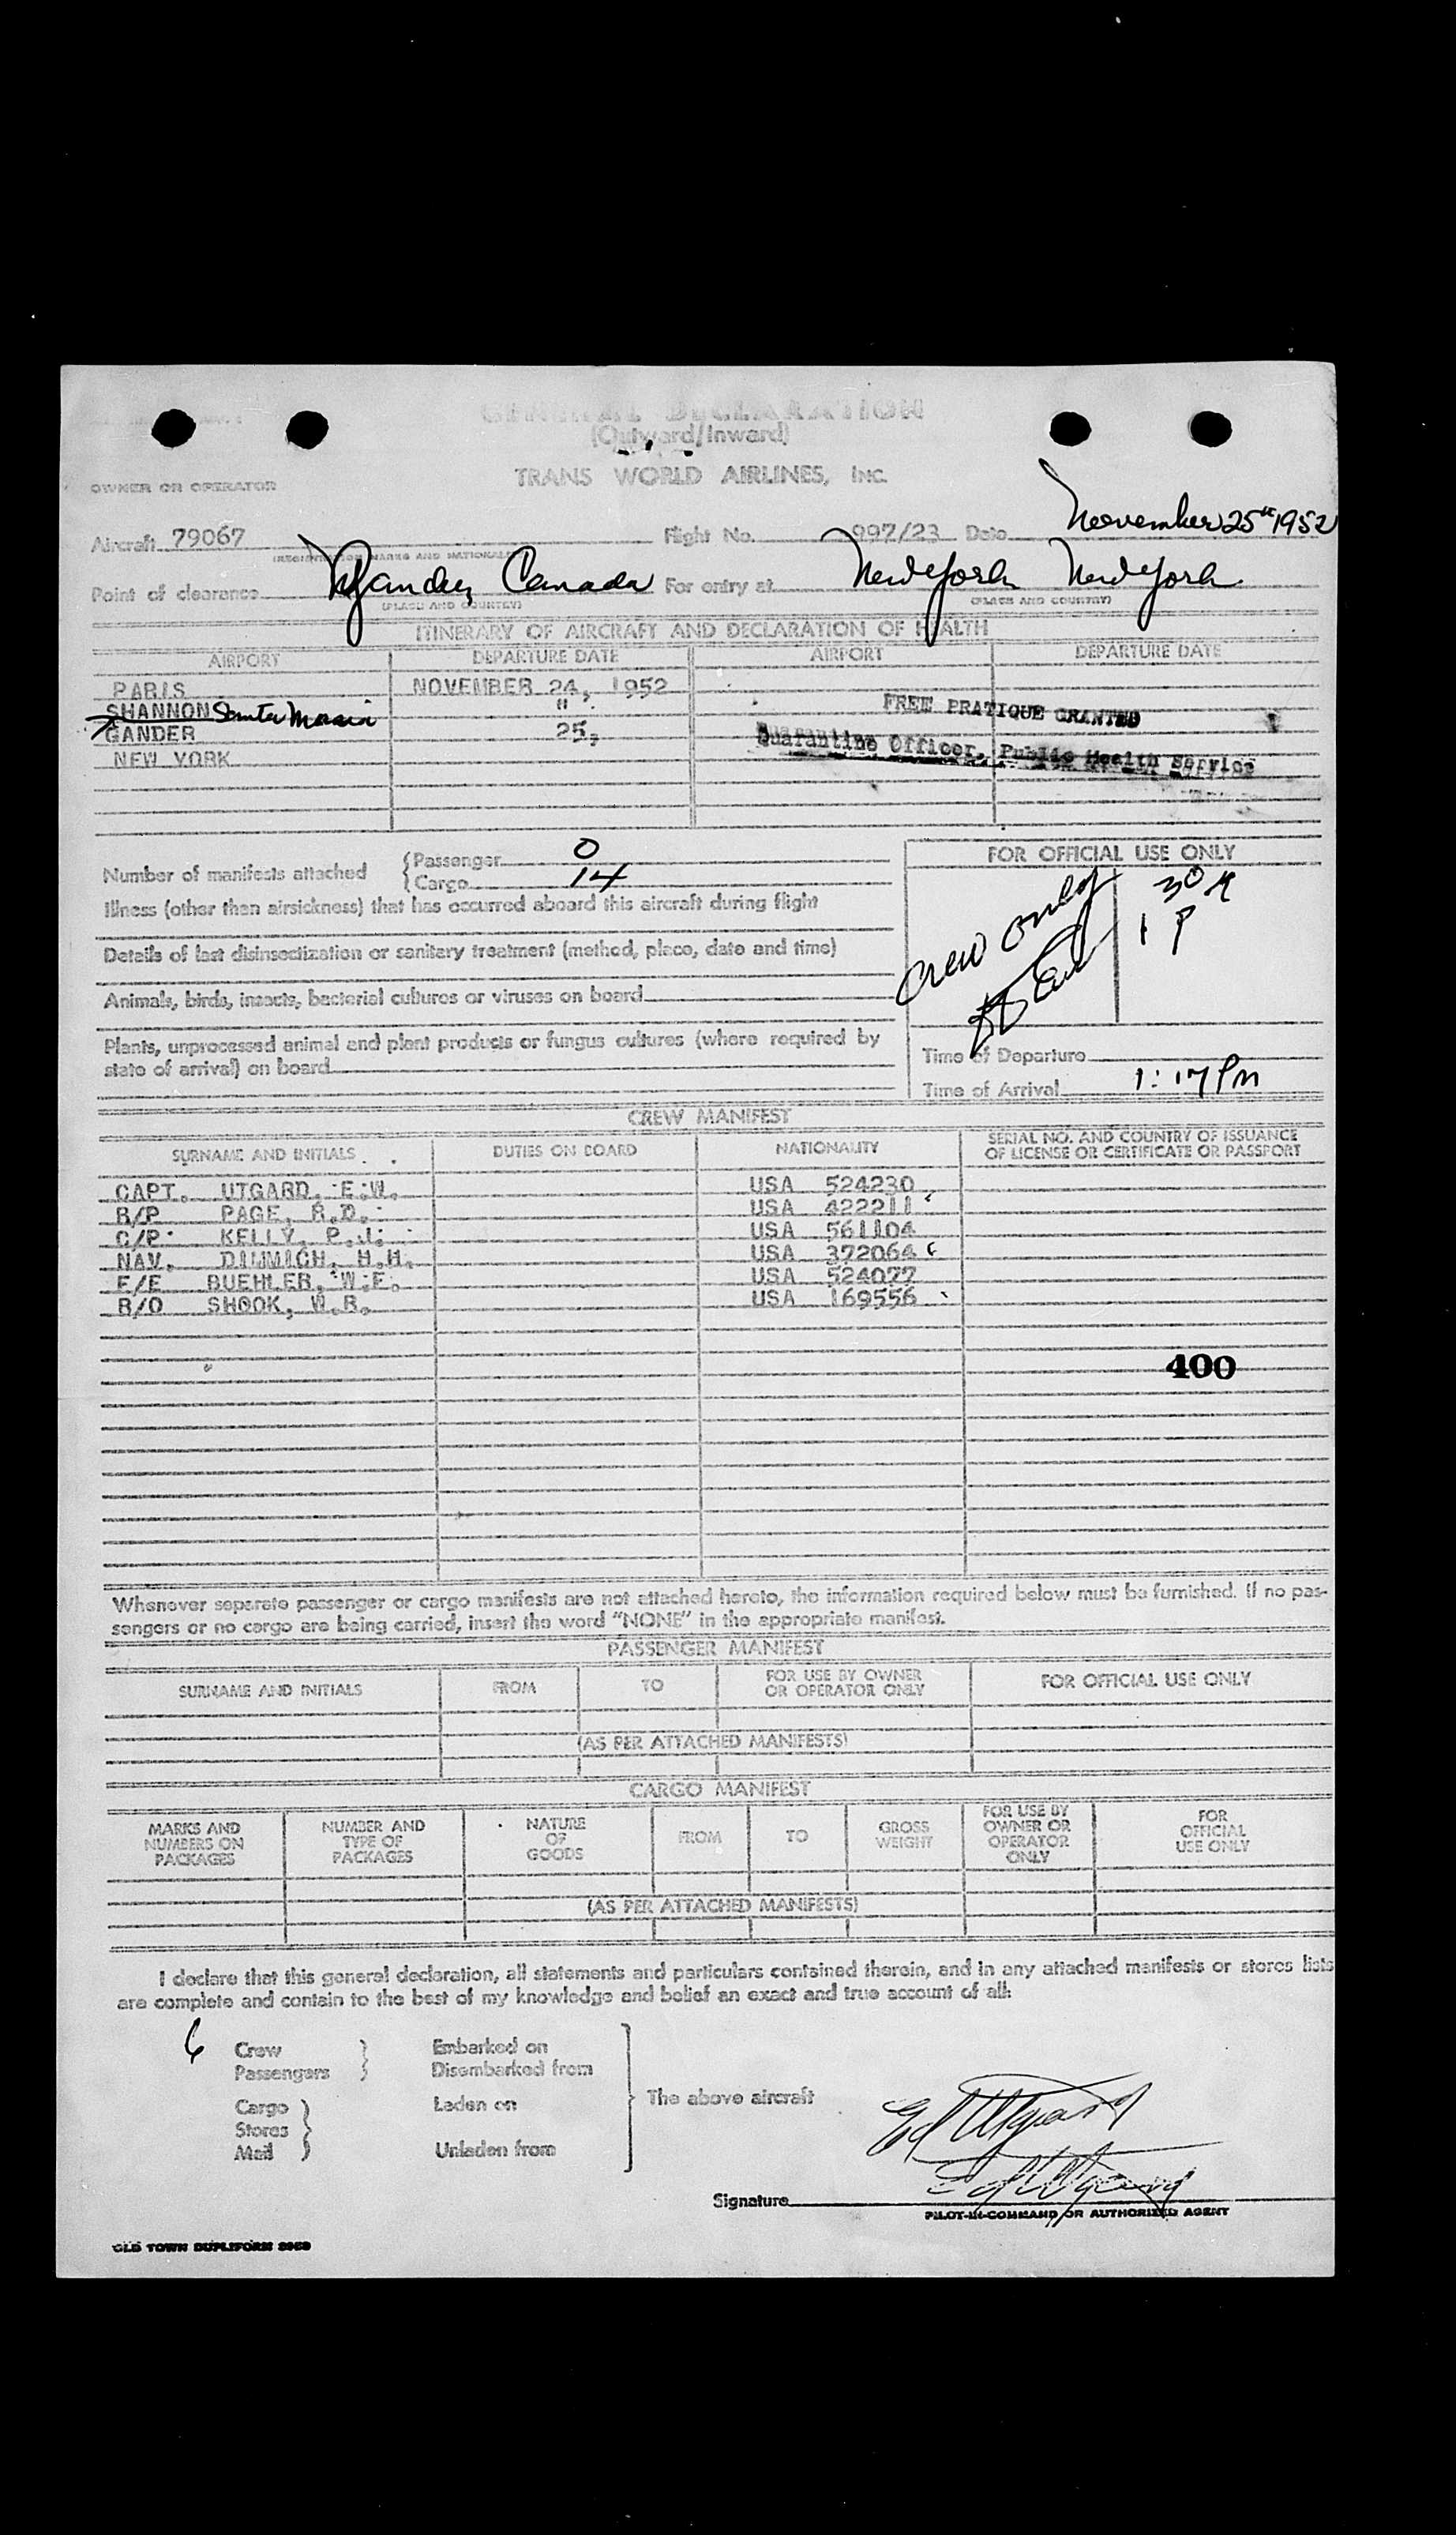 GENERAL DECLARATION
(Outward/Inward)
TRANS WORLD AIRLINES, INC.
OWNER OR OPERATOR
Aircraft 79067 Flight No. 997/23 Date November 25th 1952
(REGISTRATION MARKS AND NATIONALITY)
Point of clearance Gander, Canada For entry at New York New York
(PLACE AND COUNTRY) (PLACE AND COUNTRY)
ITINERARY OF AIRCRAFT AND DECLARATION OF HEALTH
AIRPORT DEPARTURE DATE AIRPORT DEPARTURE DATE
PARIS NOVEMBER 24, 1952
SHANNON Santa Maria "
FREE PRATIQUE GRANTED
GANDER 25,
Quarantine Officer, Public Health Service
NEW YORK
Number of manifests attached { Passenger 0
Cargo 14
FOR OFFICIAL USE ONLY
Crew only
30 M
1 P
Illness (other than airsickness) that has occurred aboard this aircraft during flight
Details of last disinsectization or sanitary treatment (method, place, date and time)
Animals, birds, insects, bacterial cultures or viruses on board
Plants, unprocessed animal and plant products or fungus cultures (where required by
state of arrival) on board
Time of Departure
Time of Arrival 1:17 PM
CREW MANIFEST
SURNAME AND INITIALS DUTIES ON BOARD NATIONALITY SERIAL NO. AND COUNTRY OF ISSUANCE
OF LICENSE OR CERTIFICATE OR PASSPORT
CAPT. UTGARD, E.W. USA 524230
R/P PAGE, R.D. USA 422211
C/P KELLY, P.J. USA 561104
NAV. DIMMICH, H.H. USA 372064
F/E BUEHLER, W.F. USA 524077
R/O SHOOK, W.R. USA 169556
400
Whenever separate passenger or cargo manifests are not attached hereto, the information required below must be furnished. If no pas-
sengers or no cargo are being carried, insert the word "NONE" in the appropriate manifest.
PASSENGER MANIFEST
SURNAME AND INITIALS FROM TO FOR USE BY OWNER
OR OPERATOR ONLY FOR OFFICIAL USE ONLY
(AS PER ATTACHED MANIFESTS)
CARGO MANIFEST
MARKS AND
NUMBERS ON
PACKAGES
NUMBER AND
TYPE OF
PACKAGES
NATURE
OF
GOODS
FROM
TO
GROSS
WEIGHT
FOR USE BY
OWNER OR
OPERATOR
ONLY
FOR
OFFICIAL
USE ONLY
(AS PER ATTACHED MANIFESTS)
I declare that this general declaration, all statements and particulars contained therein, and in any attached manifests or stores lists
are complete and contain to the best of my knowledge and belief an exact and true account of all:
6 Crew Embarked on
Passengers Disembarked from
The above aircraft
Cargo Laden on
Stores
Mail Unladen from
Ed Utgard
Ed Utgard
Signature
PILOT-IN-COMMAND OR AUTHORIZED AGENT
OLD TOWN DUPLIFORM